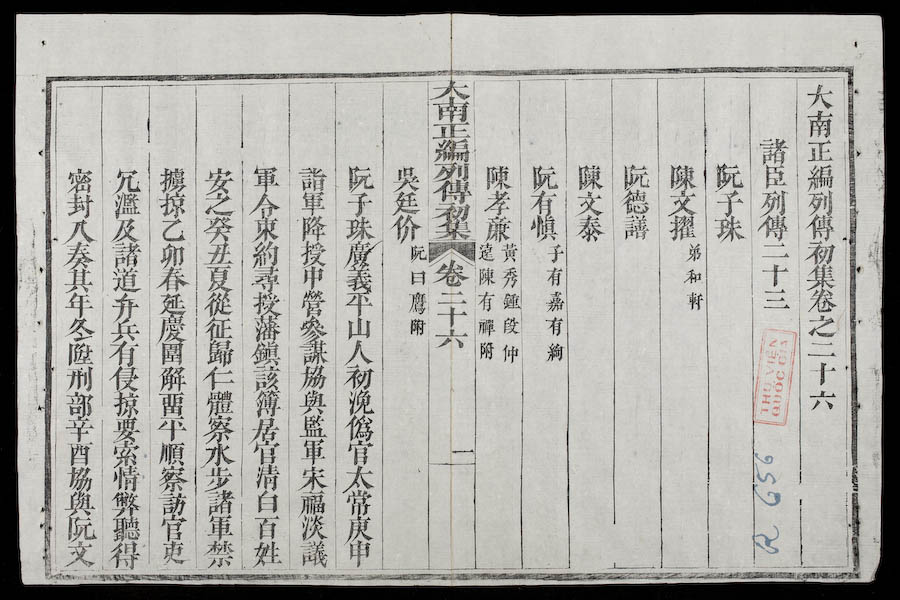 大南正編列傳初集卷之二十六
諸臣列傳二十三
阮子珠
陳文擢 弟和軒
阮德譱
陳文泰
阮有慎 子有嘉有絢
陳孝廉 黃秀 段仲 陳有禪附
大南正編列傳初集 卷二十六 一
吳廷价 阮曰鷹附
阮子珠廣義平山人初浼僞官太常庚申
詣軍降授中營參謀協與監軍宋福淡議
軍令束約尋授藩鎮該簿居官清白百姓
安之癸丑夏從征歸仁體察水步諸軍禁
擄掠乙卯春延慶圍解畱平順察訪官吏
冗濫及諸道弁兵有侵掠要索情弊聽得
密封入奏其年冬陞刑部辛酉協與阮文
THƯ VIỆN
QUỐC GIA
R 656